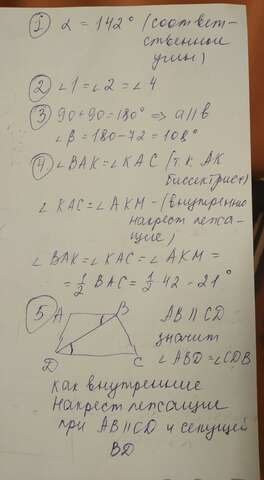 ① α = 142° (соответ-
ственные
углы)
② ∠1 = ∠2 = ∠4
③ 90 + 90 = 180° => a || b
∠β = 180 - 72 = 108°
④ ∠BAK = ∠KAC (т.к. AK
биссектриса)
∠KAC = ∠AKM - (внутренние
накрест лежа-
щие)
∠BAK = ∠KAC = ∠AKM =
= 1/2 BAC = 1/2 · 42 = 21°
⑤ A B AB || CD
значит
∠ABD = ∠CDB
D C
как внутренние
накрест лежащие
при AB || CD и секущей
BD